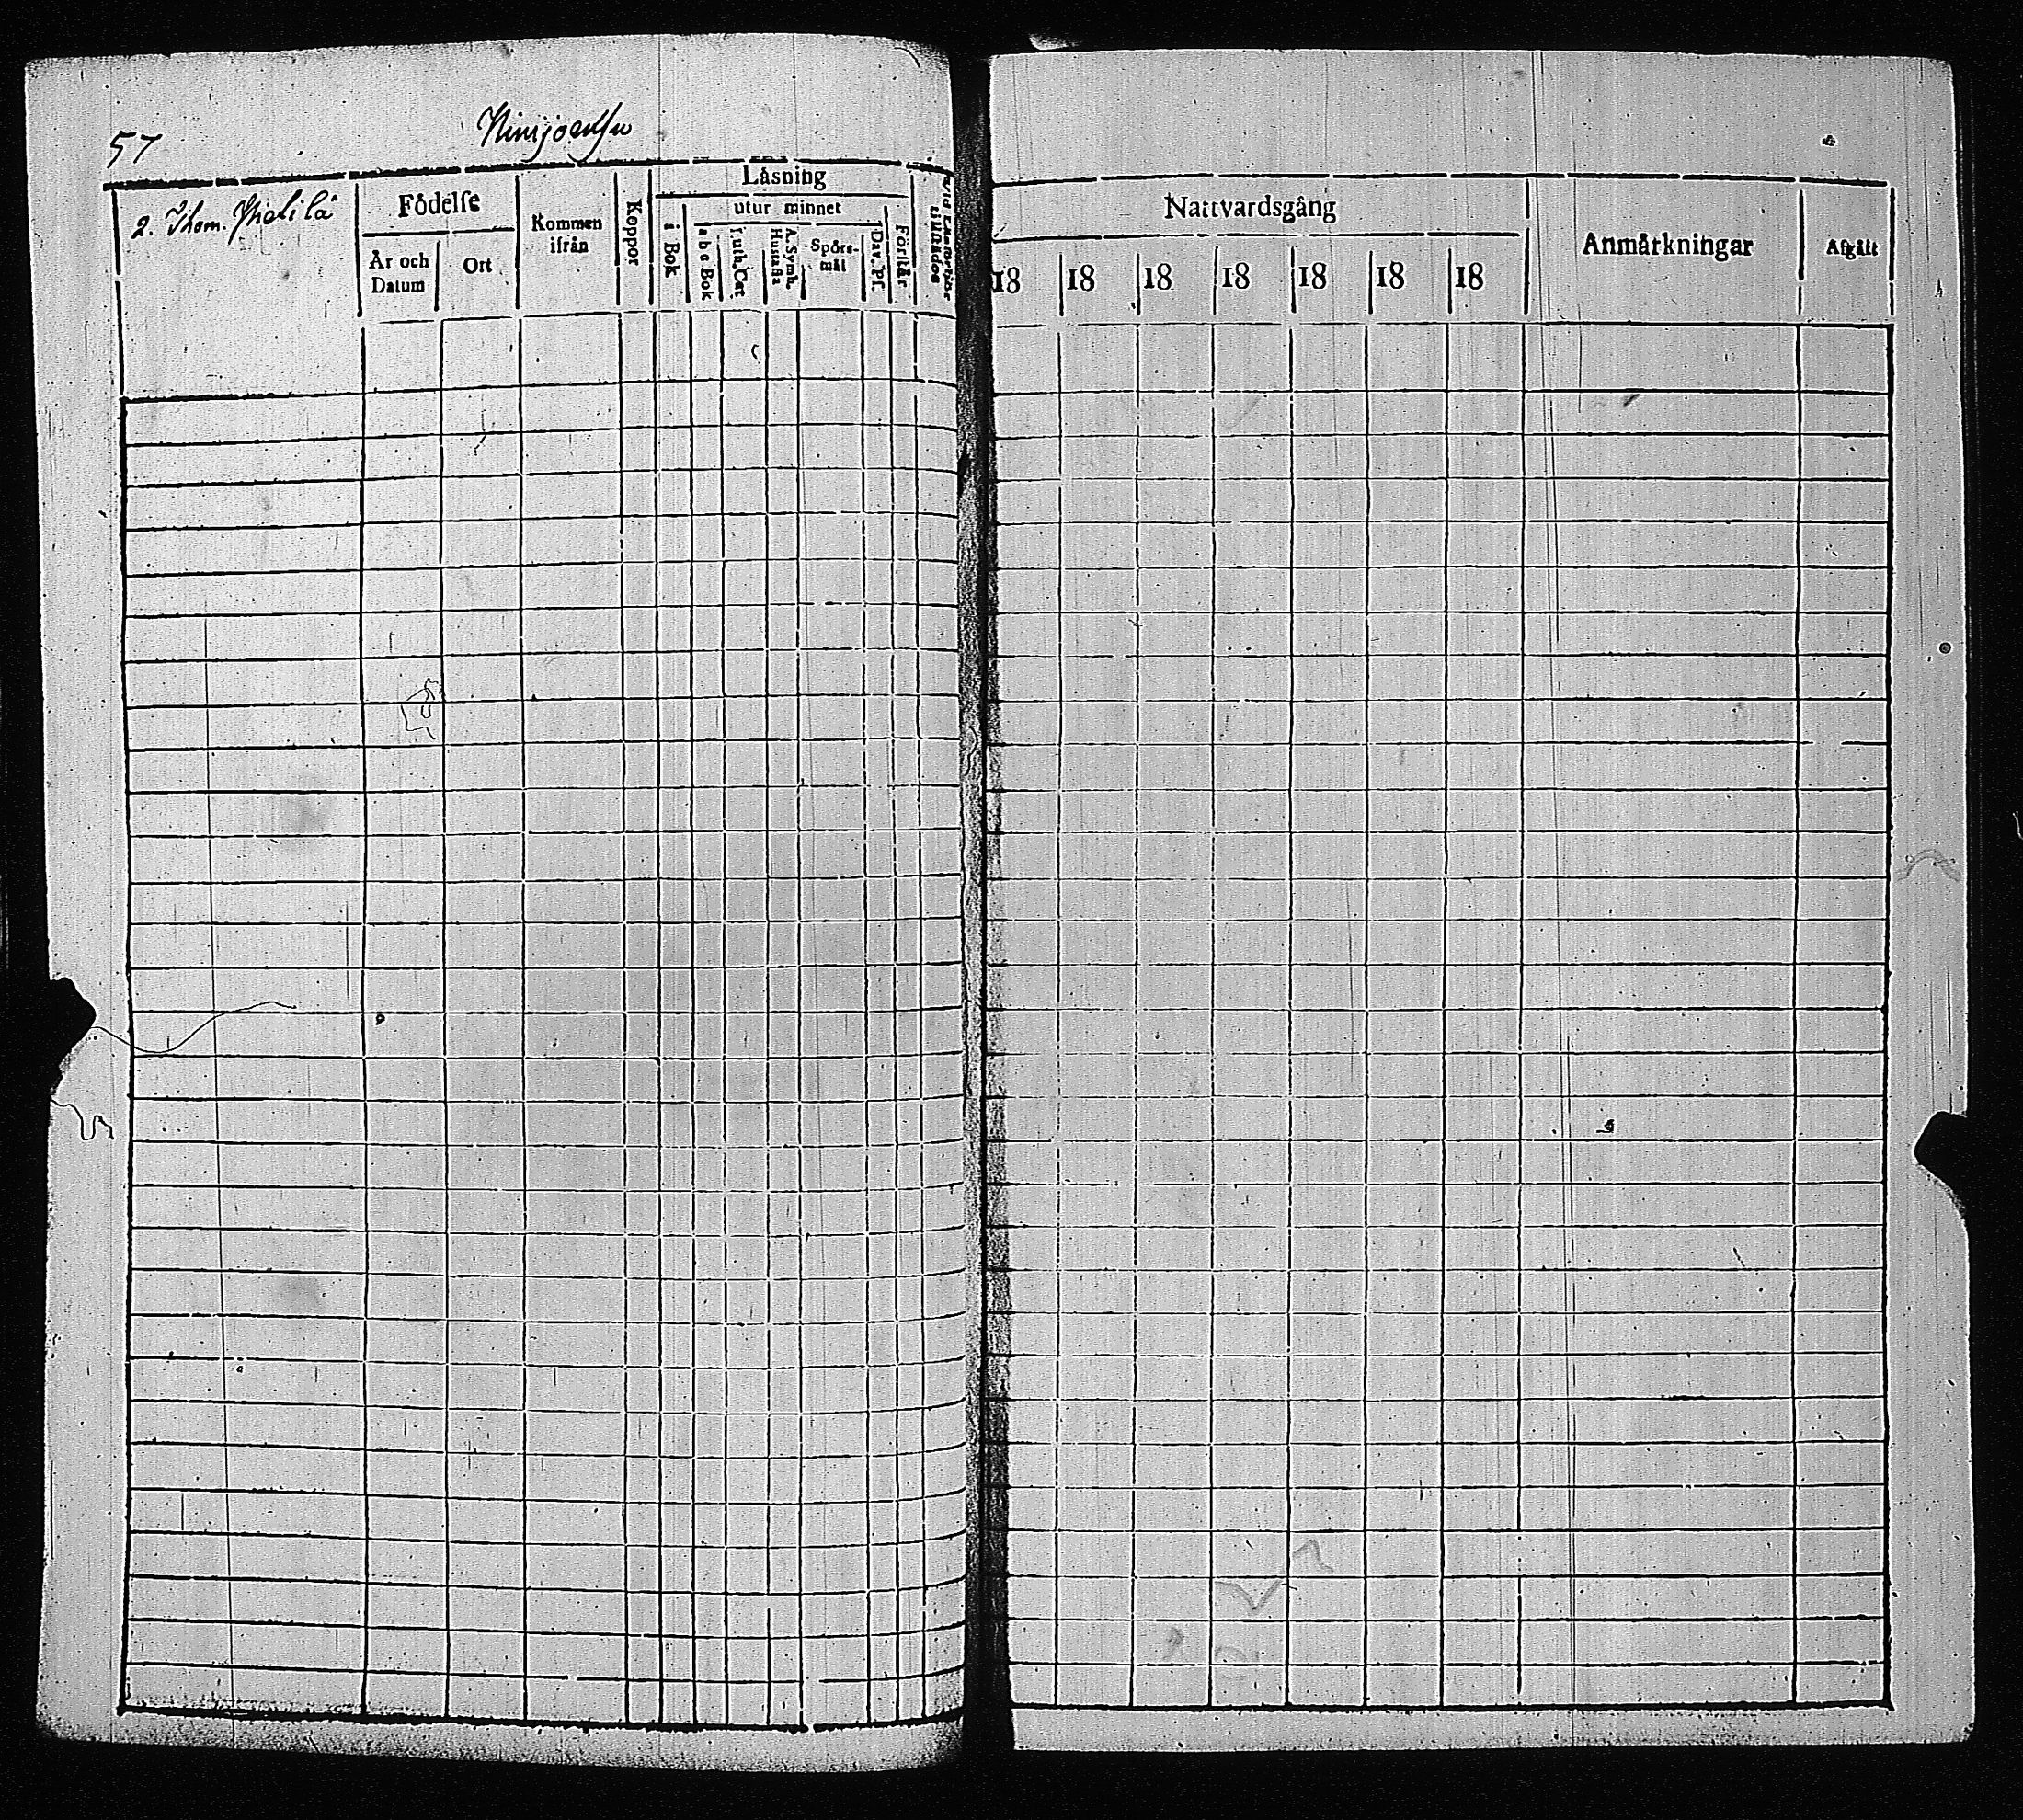 57
2. Thom.
Födelse
År och Datum
Ort
Kommen ifrån
Koppor
Låsning
i Bok
utur minnet
a b c Bok
Luth. Cat
A. Symb. Hustafla
Spörsmål
Dav. Ps.
Förstår
Nattvardsgång
18 18 18 18 18 18 18
Anmärkningar
Afgått